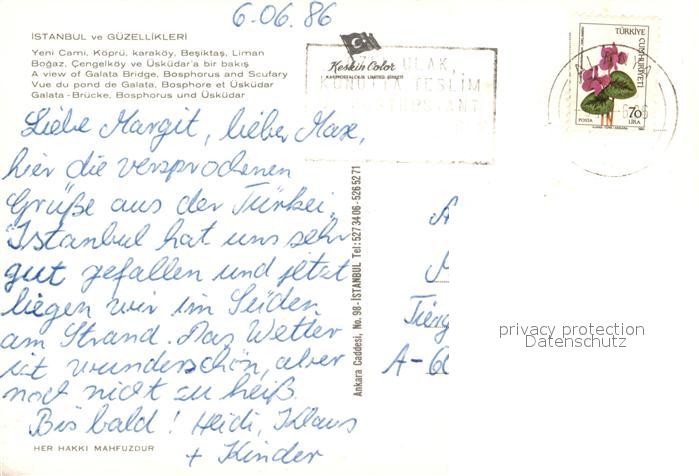 6.06.86
İSTANBUL ve GÜZELLİKLERİ
Yeni Cami, Köprü, karaköy, Beşiktaş, Liman
Boğaz, Çengelköy ve Üsküdar'a bir bakış
A view of Galata Bridge, Bosphorus and Scufary
Vue du pond de Galata, Bosphore et Üsküdar
Galata-Brücke, Bosphorus und Üsküdar
Keskin Color
KARTPOSTALCILIK LIMITED ŞİRKETİ
ULAK,
KONUTTA TESLİM
TÜRKİYE
CUMHURİYETİ
70
LİRA
POSTA
Liebe Margit, lieber Max,
hier die versprochenen
Grüße aus der Türkei.
Istanbul hat uns sehr
gut gefallen und jetzt
liegen wir im Süden
am Strand. Das Wetter
ist wunderschön, aber
noch nicht zu heiß.
Bis bald! Heidi, Klaus
+ Kinder
HER HAKKI MAHFUZDUR
Ankara Caddesi, No. 98-İSTANBUL Tel: 5273406-5265271
A-60
privacy protection
Datenschutz